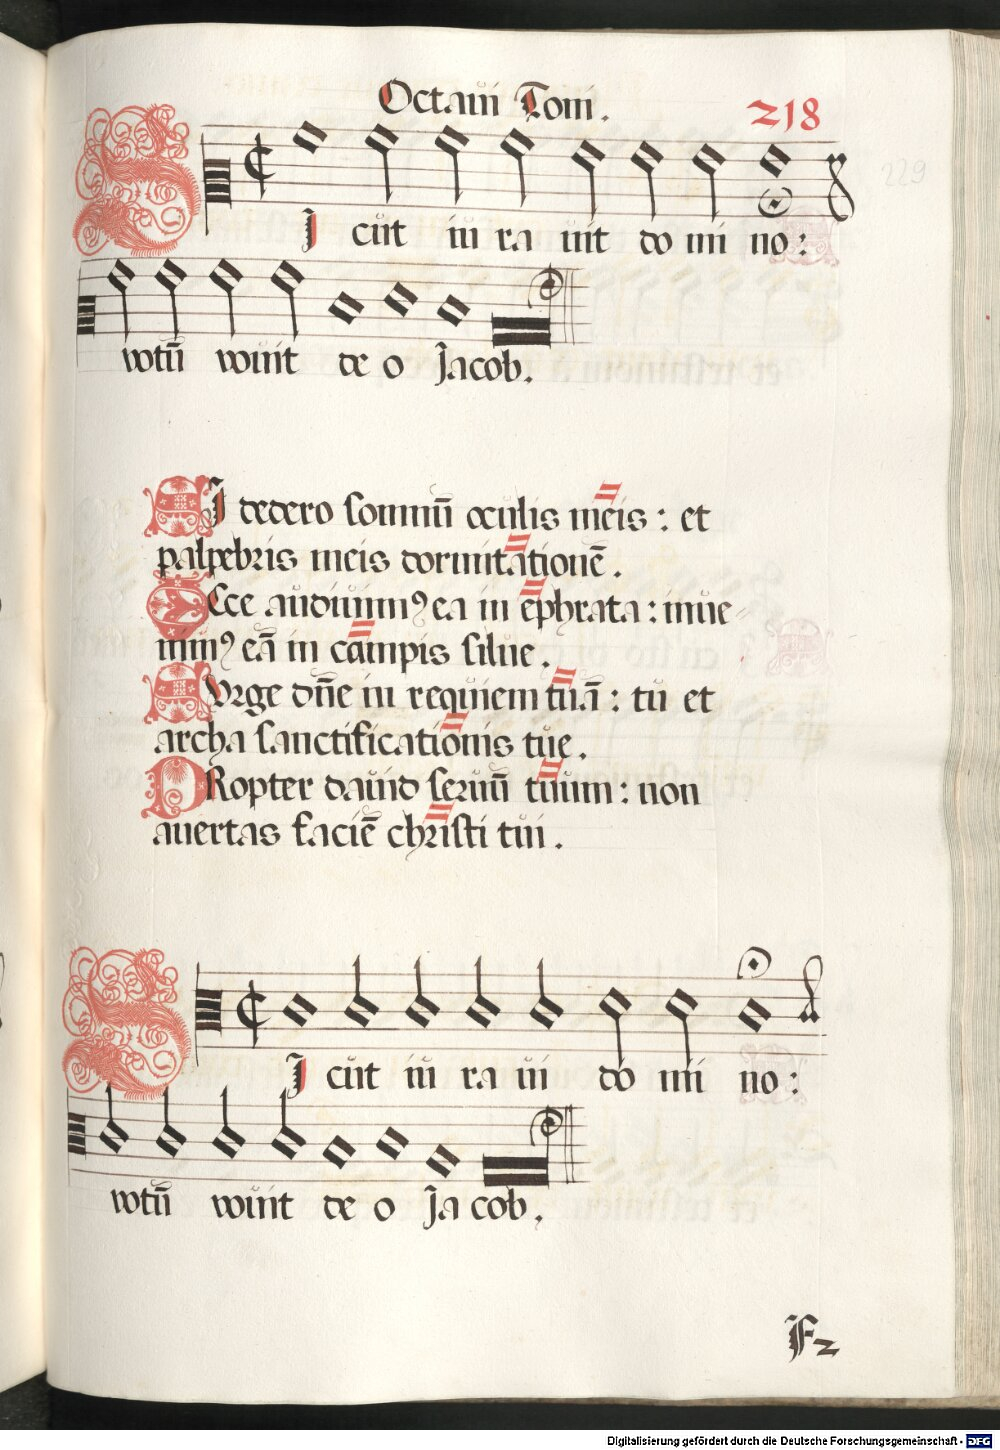 Octaui Toni.
218
229
SI cut iu ra uit do mi no:
votũ vouit de o Jacob.
SI dedero somnũ oculis meis: et
palpebris meis dormitationẽ.
ECce audiuimꝰ ea in ephrata: inue
nimꝰ eã in campis silue.
SUrge dñe in requiem tuã: tu et
archa sanctificationis tue.
PRopter dauid seruũ tuum: non
auertas faciẽ christi tui.
SI cut iu ra ui do mi no:
votũ vouit de o Ja cob.
F2
Digitalisierung gefördert durch die Deutsche Forschungsgemeinschaft - DFG